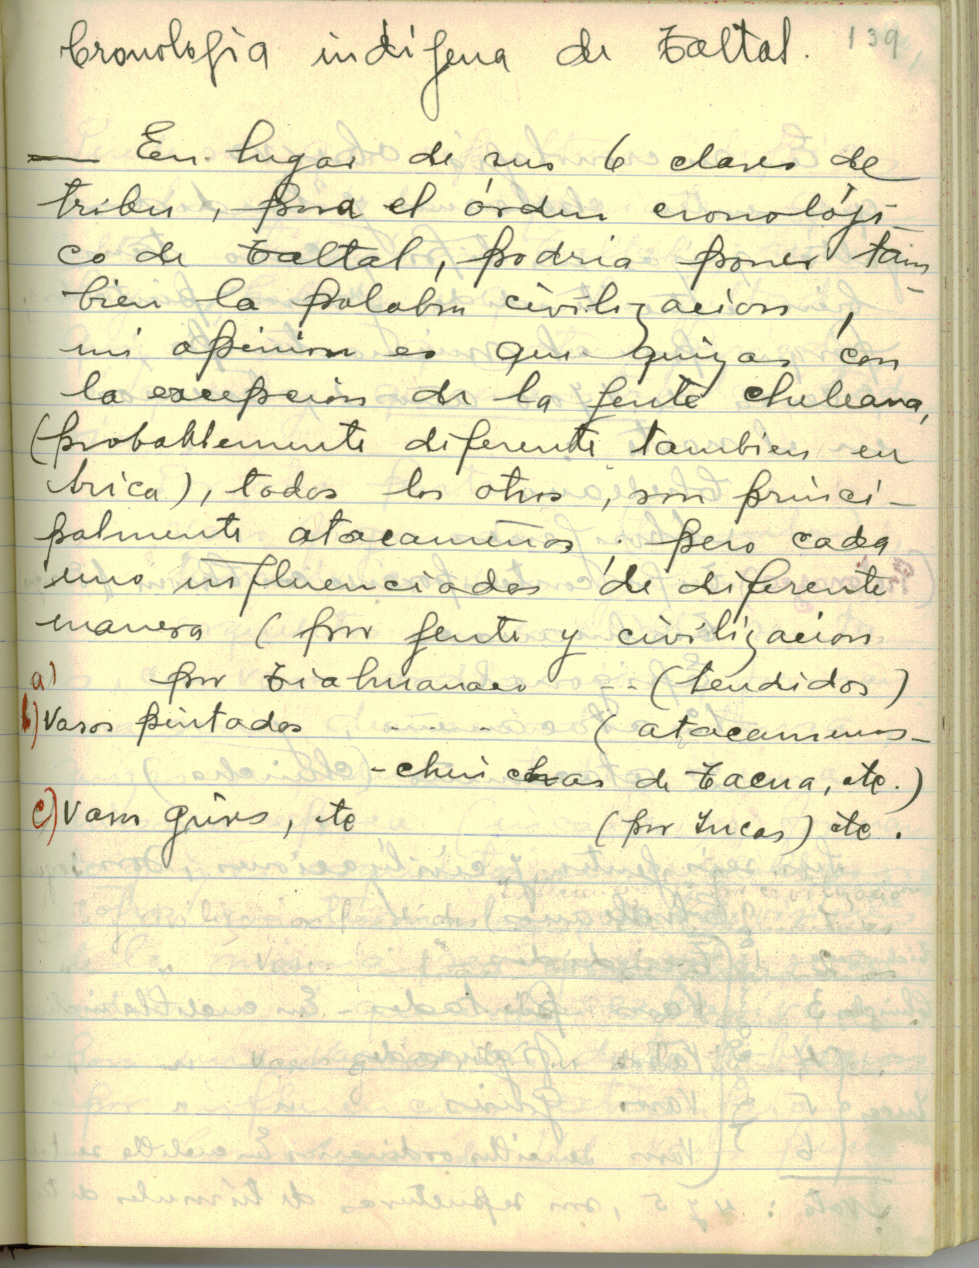 Cronologia indígena de Taltal. 139
— En lugar de sus 6 clases de
tribu, para el órden cronolóji-
co de Taltal, podria poner tam-
bien la palabra civilizacion,
mi opinion es que quizas con
la excepcion de la gente cheleana,
(probablemente diferente tambien en
Arica), todos los otros, son princi-
palmente atacameños; pero cada
uno influenciados de diferente
manera (por gente y civilizacion
a) por Tiahuanaco -- (tendidos)
b) Vasos pintados ..... (atacamenos-
-chinchas de Tacna, etc.)
c) Vasos grises, etc (por Incas) etc.